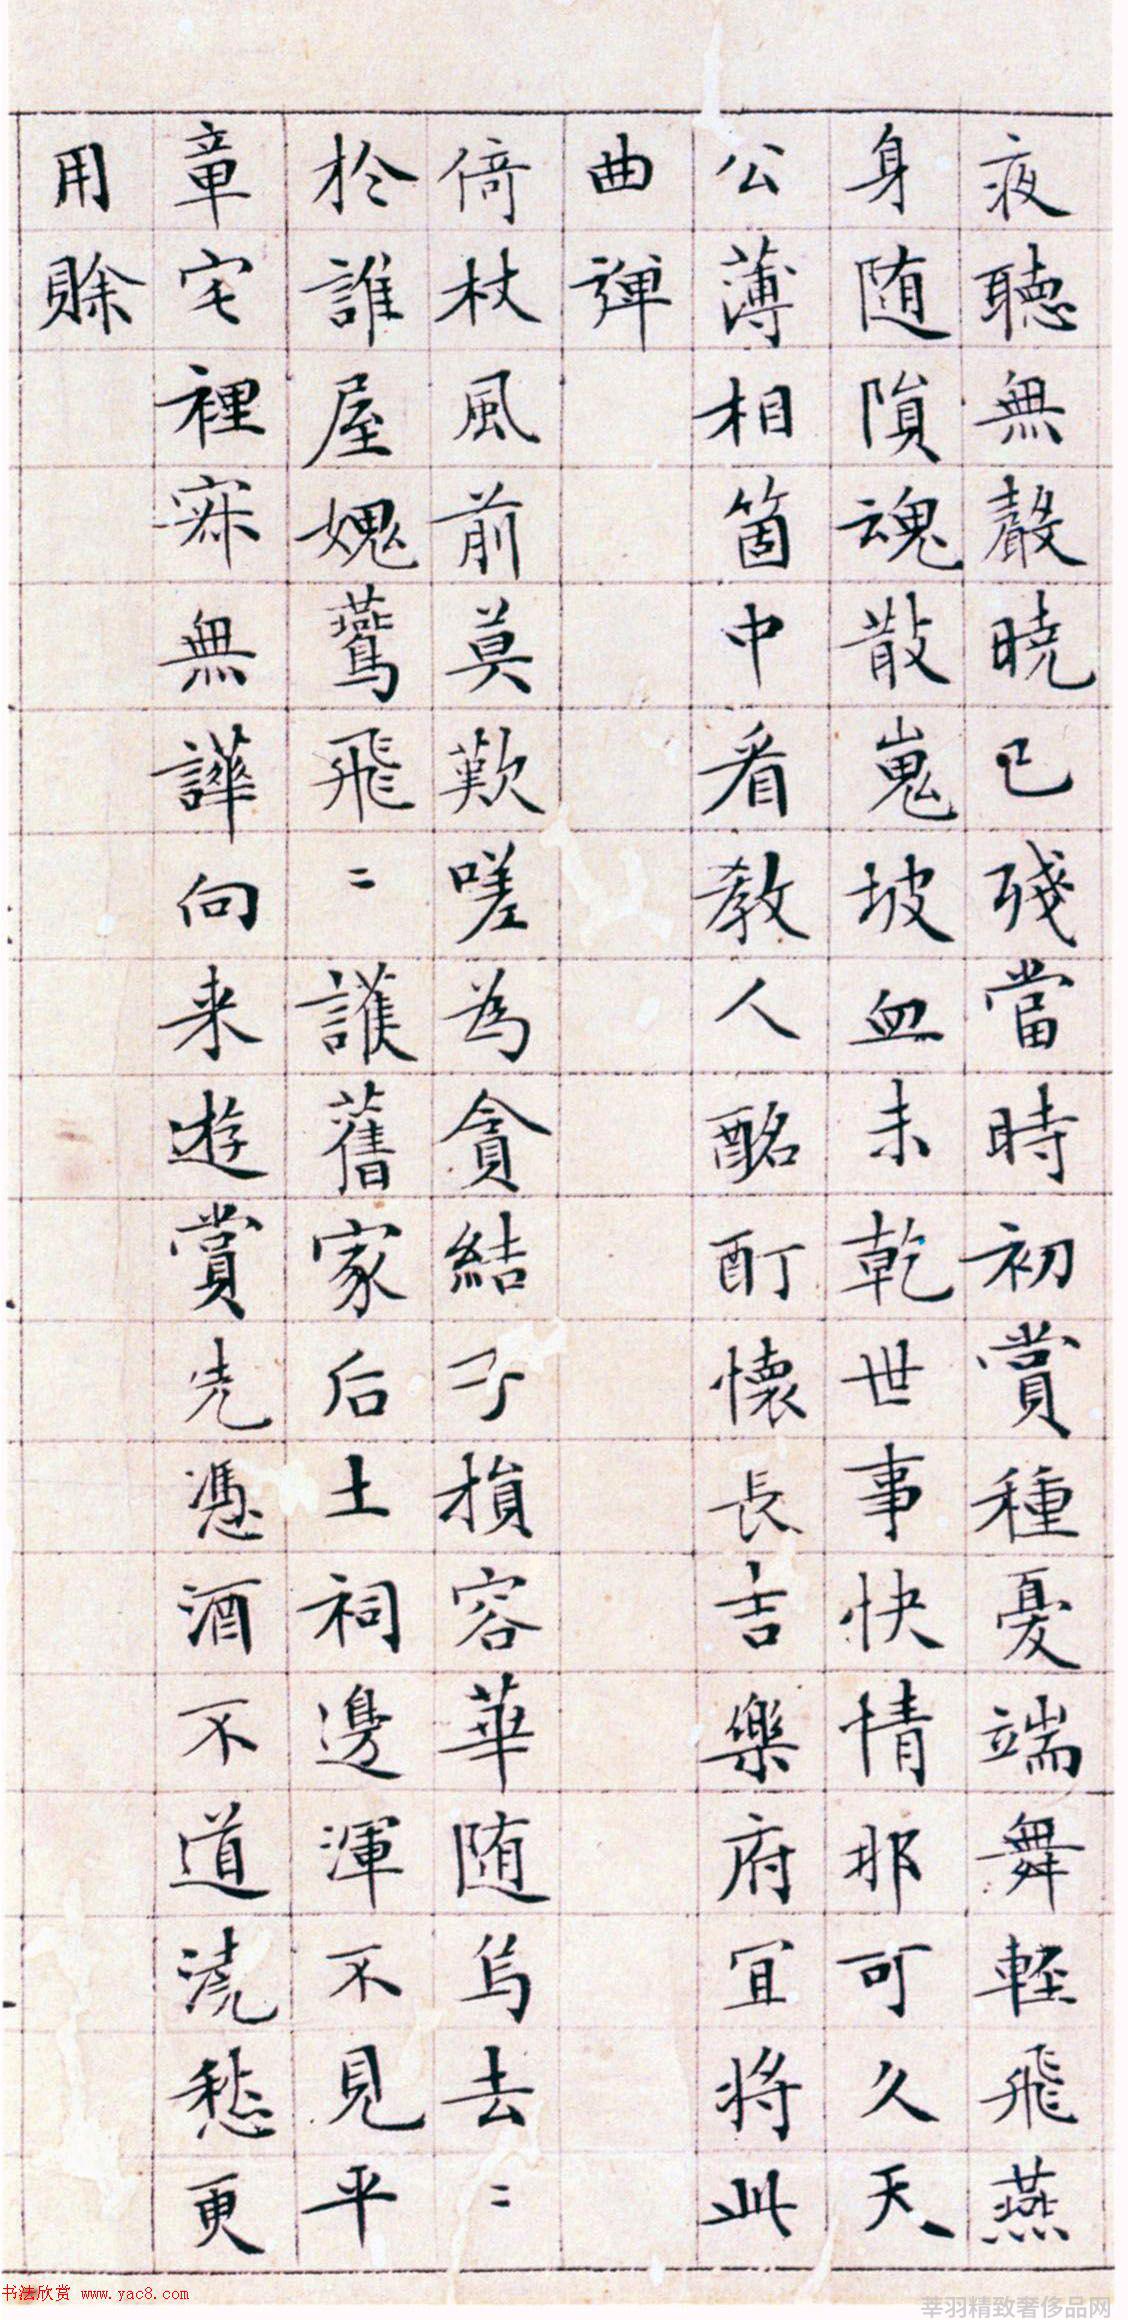 夜聽無聲曉已殘當時初賞種憂端舞輕飛燕
身随隕魂散嵬坡血未乾世事快情那可久天
公薄相箇中看教人酩酊懷長吉樂府宜將此
曲彈
倚杖風前莫歎嗟為貪結子損容華随烏去〻
於誰屋媿鷰飛〻護舊家后土祠邊渾不見平
章宅裡寂無譁向来遊賞先憑酒不道澆愁更
用賒
书法欣赏 www.yac8.com
莘羽精致奢侈品网